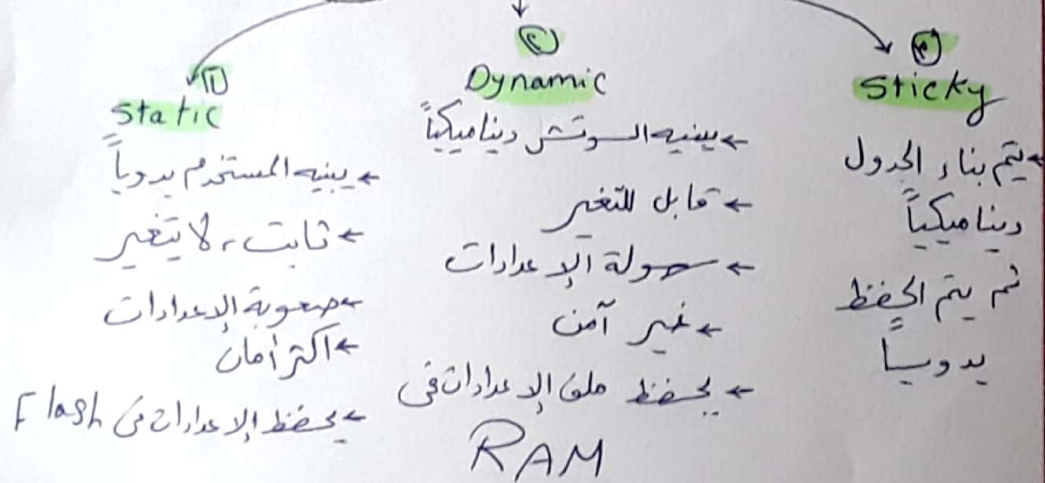 ① Static
← يبنيه المستخدم يدوياً
← ثابت، لا يتغير
← صعوبة الإعدادات
← اكثر أمان
← يحفظ الإعدادات في Flash
② Dynamic
← يبنيه السوتش ديناميكياً
← قابل للتغير
← سهولة الإعدادات
← غير آمن
← يحفظ ملف الإعدادات في
RAM
③ Sticky
← يتم بناء الجدول
ديناميكياً
ثم يتم الحفظ
يدوياً